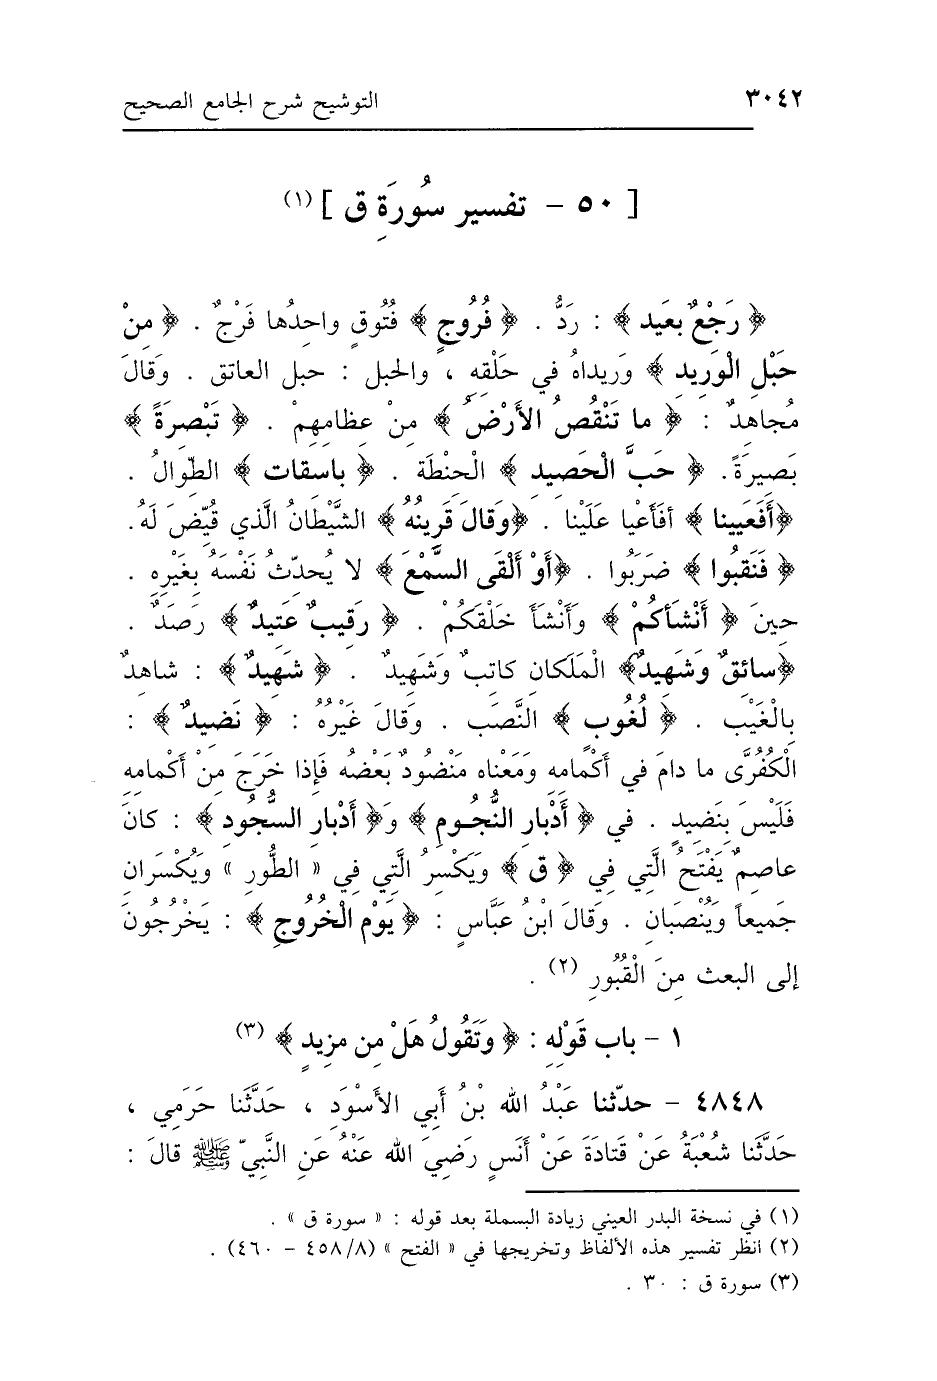 ٣٠٤٢ التوشيح شرح الجامع الصحيح
[ ٥٠ – تفسير سُورَةِ ق ] (١)
﴿ رَجْعٌ بعَيد ﴾ : رَدُّ . ﴿ فُرُوجٍ ﴾ فُتُوقٍ واحِدُها فَرْجٌ . ﴿ مِنْ
حَبْلِ الْوَرِيدِ ﴾ وَريداهُ في حَلْقِهِ ، والحبل : حبل العاتق . وَقَالَ
مُجاهدٌ : ﴿ ما تَنْقُصُ الأَرْضُ ﴾ مِنْ عِظامِهِمْ . ﴿ تَبْصِرَةً ﴾
بَصِيرَةً. ﴿ حَبَّ الْحَصِيدِ ﴾ الْحِنْطَة . ﴿ باسِقات ﴾ الطِّوالُ .
﴿أَفَعَيينا ﴾ أفَأَعْيا عَلَيْنا . ﴿وَقالَ قَرِينُهُ ﴾ الشَّيْطانُ الَّذي قُيِّضَ لَهُ.
﴿ فَنَقبُوا ﴾ ضَرَبُوا . ﴿أَوْ أَلْقَى السَّمْعَ ﴾ لا يُحدِّثُ نَفْسَهُ بِغَيْرِهِ .
حِينَ ﴿ أَنْشَأَكُمْ ﴾ وَأَنْشَأَ خَلْقَكُمْ . ﴿ رَقِيبٌ عَتِيدٌ ﴾ رَصَدٌ .
﴿سائقٌ وَشَهِيدٌ﴾ الْمَلَكانِ كاتبٌ وَشَهِيدٌ . ﴿ شَهِيدٌ ﴾ : شاهدٌ
بِالْغَيْبِ . ﴿ لُغُوبٍ ﴾ النَّصَبِ . وَقالَ غَيْرُهُ : ﴿ نَضِيدٌ ﴾ :
الْكُفُرَّى ما دامَ في أَكْمامِهِ وَمَعْناه مَنْضُودٌ بَعْضُه فَإذا خَرَجَ مِنْ أَكْمامِهِ
فَلَيْسَ بِنَضِيدٍ . في ﴿ أَدْبارِ النُّجُومِ ﴾ وَ﴿ أَدْبارِ السُّجُودِ ﴾ : كانَ
عاصِمٌ يَفْتَحُ الَّتِي فِي ﴿ ق ﴾ وَيَكْسِرُ الَّتِي فِي « الطُّورِ » وَيُكْسَرانِ
جَميعاً وَيُنْصَبَانِ . وَقَالَ ابْنُ عَبَّاسٍ : ﴿ يَوْم الْخُرُوجِ ﴾ : يَخْرُجُونَ
إلى البعث مِنَ الْقُبُورِ (٢) .
١ – باب قَوْلِهِ : ﴿ وَتَقُولُ هَلْ مِن مزِيدٍ ﴾ (٣)
٤٨٤٨ – حدّثنا عَبْدُ الله بْنُ أَبِي الأَسْوَدِ ، حَدَّثَنا حَرَمِي ،
حَدَّثَنا شُعْبَةُ عَنْ قَتادَةَ عَنْ أَنَسٍ رَضِيَ الله عَنْهُ عَنِ النَّبِيّ ﷺ قالَ :
(١) في نسخة البدر العيني زيادة البسملة بعد قوله : « سورة ق » .
(٢) انظر تفسير هذه الألفاظ وتخريجها في « الفتح » (٤٥٨/٨ – ٤٦٠) .
(٣) سورة ق : ٣٠ .